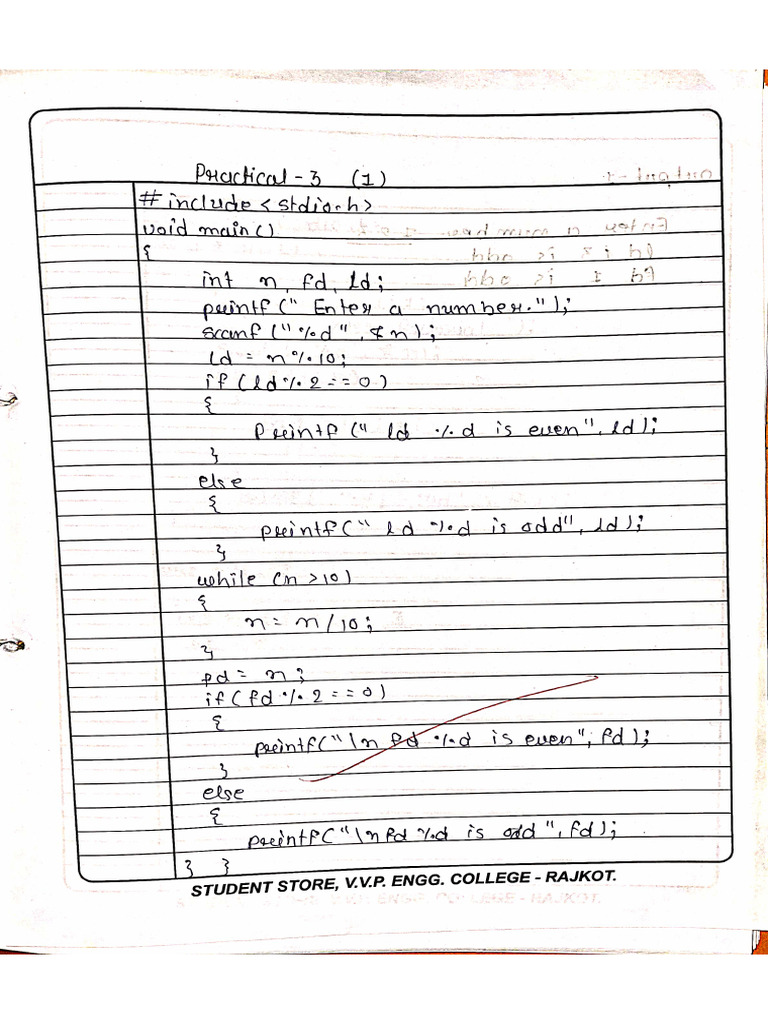 Practical - 3 (1)
# include < stdio.h>
void main ()
{
int n, fd, ld;
printf (" Enter a number.");
scanf ("%d", &n);
ld = n%10;
if (ld % 2 == 0)
{
Printf (" ld %d is even", ld);
}
else
{
printf(" ld %d is odd", ld);
}
while (n >10)
{
n = n/10;
}
fd = n;
if (fd % 2 == 0)
{
printf("\n fd %d is even", fd);
}
else
{
printf("\n fd %d is odd", fd);
} }
STUDENT STORE, V.V.P. ENGG. COLLEGE - RAJKOT.